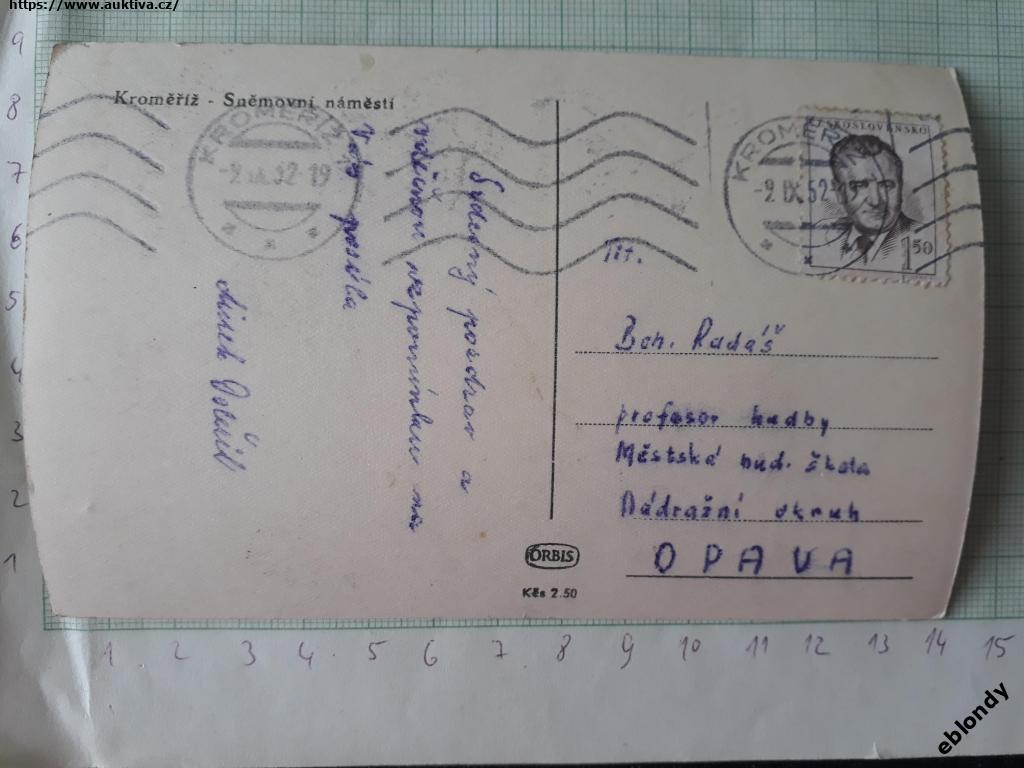 https://www.auktiva.cz/
Kroměříž - Sněmovní náměstí
KROMĚŘÍŽ
-9.IX.52-19
KROMĚŘÍŽ
-9.IX.52-19
ČESKOSLOVENSKO
1 50
Srdečný pozdrav a
vzpomínkou na
Vás posílá
Tit.
Boh. Radáš
profesor hudby
Městská hud. škola
Nádražní okruh
OPAVA
ORBIS
Kčs 2.50
9
8
7
6
5
4
3
2
1
1 2 3 4 5 6 7 8 9 10 11 12 13 14 15
eblondy